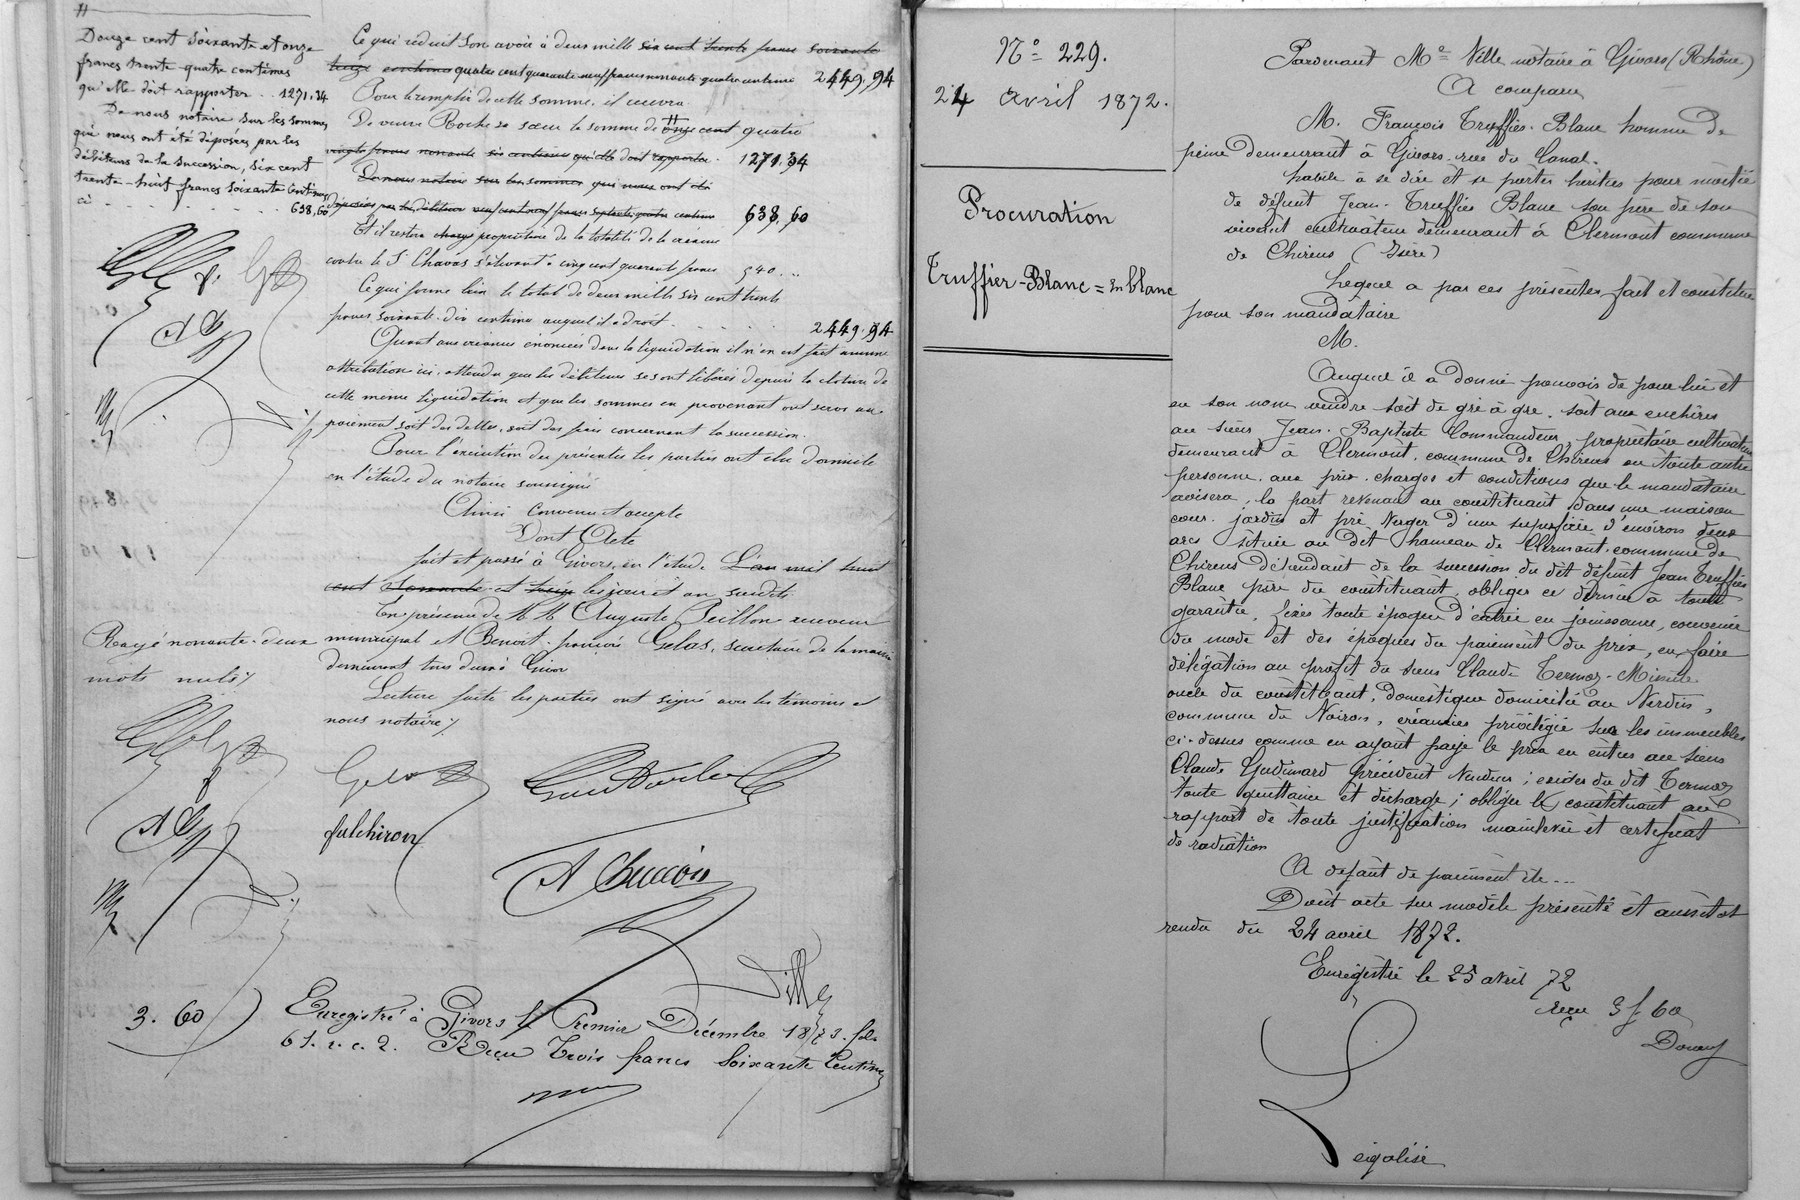 Douze cent soixante et onze
francs trente quatre centimes
qu'elle doit rapporter . . 1271.34
De nous notaire sur les sommes
qui nous ont été déposées par les
débiteurs de la succession, six cent
trente-huit francs soixante centimes
ci - - - - - 638,60
Rayé nonante-deux
mots nuls
3. 60
Ce qui réduit son avoir à deux mille six cent trente francs soixante
centimes quatre cent quarante neuf francs nonante quatre centimes 2449,94
Pour le remplir de cette somme, il recevra
De veuve Roche sa sœur la somme de onze cent quatre
vingts francs nonante six centimes qu'elle doit rapporter. 1271.34
De nous notaire sur les sommes qui nous ont été
déposées par les débiteurs francs centimes 638,60
Et il restera propriétaire de la totalité de la créance
contre le Sr Chavas s'élevant à cinq cent quarante francs 540. ..
Ce qui forme bien le total de deux mille six cent trente
francs soixante-dix centimes auquel il a droit . . . . 2449.94
Quant aux créances énoncées dans la liquidation il n'en est fait aucune
attribution ici, attendu que les débiteurs se sont libérés depuis la clôture de
cette même liquidation et que les sommes en provenant ont servi au
paiement soit des dettes, soit des frais concernant la succession.
Pour l'exécution des présentes les parties ont élu domicile
en l'étude du notaire soussigné
Ainsi convenu et accepté
Dont Acte
fait et passé à Givors, en l'étude L'an mil huit
cent et les jour et an susdits
En présence de M.M. Auguste Peillon receveur
municipal et Benoît-françois Gelas, secrétaire de la mairie
demeurant tous deux à Givors
Lecture faite les parties ont signé avec les témoins et
nous notaire
Gelas
fulchiron
Ville
Enregistré à Givors le Premier Décembre 1873. fol.
61. r. c. 2. Reçu Trois francs Soixante Centimes
No 229.
24 avril 1872.
Procuration
Truffier-Blanc = en blanc
Pardevant Me Ville notaire à Givors (Rhône)
A comparu
M. François Truffier-Blanc homme de
peine demeurant à Givors rue du Canal.
habile à se dire et se porter héritier pour moitié
de défunt Jean-Truffier Blanc son père de son
vivant cultivateur demeurant à Clermont commune
de Chirens (Isère)
Lequel a par ces présentes fait et constitué
pour son mandataire
M.
Auquel il a donné pouvoir de pour lui et
en son nom vendre soit de gré à gré, soit aux enchères
au sieur Jean-Baptiste Commandeur, propriétaire cultivateur
demeurant à Clermont, commune de Chirens ou toute autre
personne, aux prix, charges et conditions que le mandataire
avisera, la part revenant au constituant dans une maison
cour, jardin et pré Verger d'une superficie d'environ deux
ares située au dit hameau de Clermont commune de
Chirens dépendant de la succession du dit défunt Jean Truffier
Blanc père du constituant, obliger ce dernier à toute
garantie, fixer toute époque d'entrée en jouissance, convenir
du mode et des époques du paiement du prix, en faire
délégation au profit du sieur Claude Termoz-Mimile
oncle du constituant, domestique domicilié au Verdin,
commune de Voiron, créancier privilégié sur les immeubles
ci-dessus comme en ayant payé le prix en entier au sieur
Claude Gudimard précédent Vendeur ; exiger du dit Termoz
toute quittance et décharge ; obliger le constituant au
rapport de toute justification mainlevée et certificat
de radiation
A défaut de paiement etc...
Dont acte sur modèle présenté et aussitôt
rendu du 24 avril 1872.
Enregistré le 25 avril 72
reçu 3 f 60
Légalisé